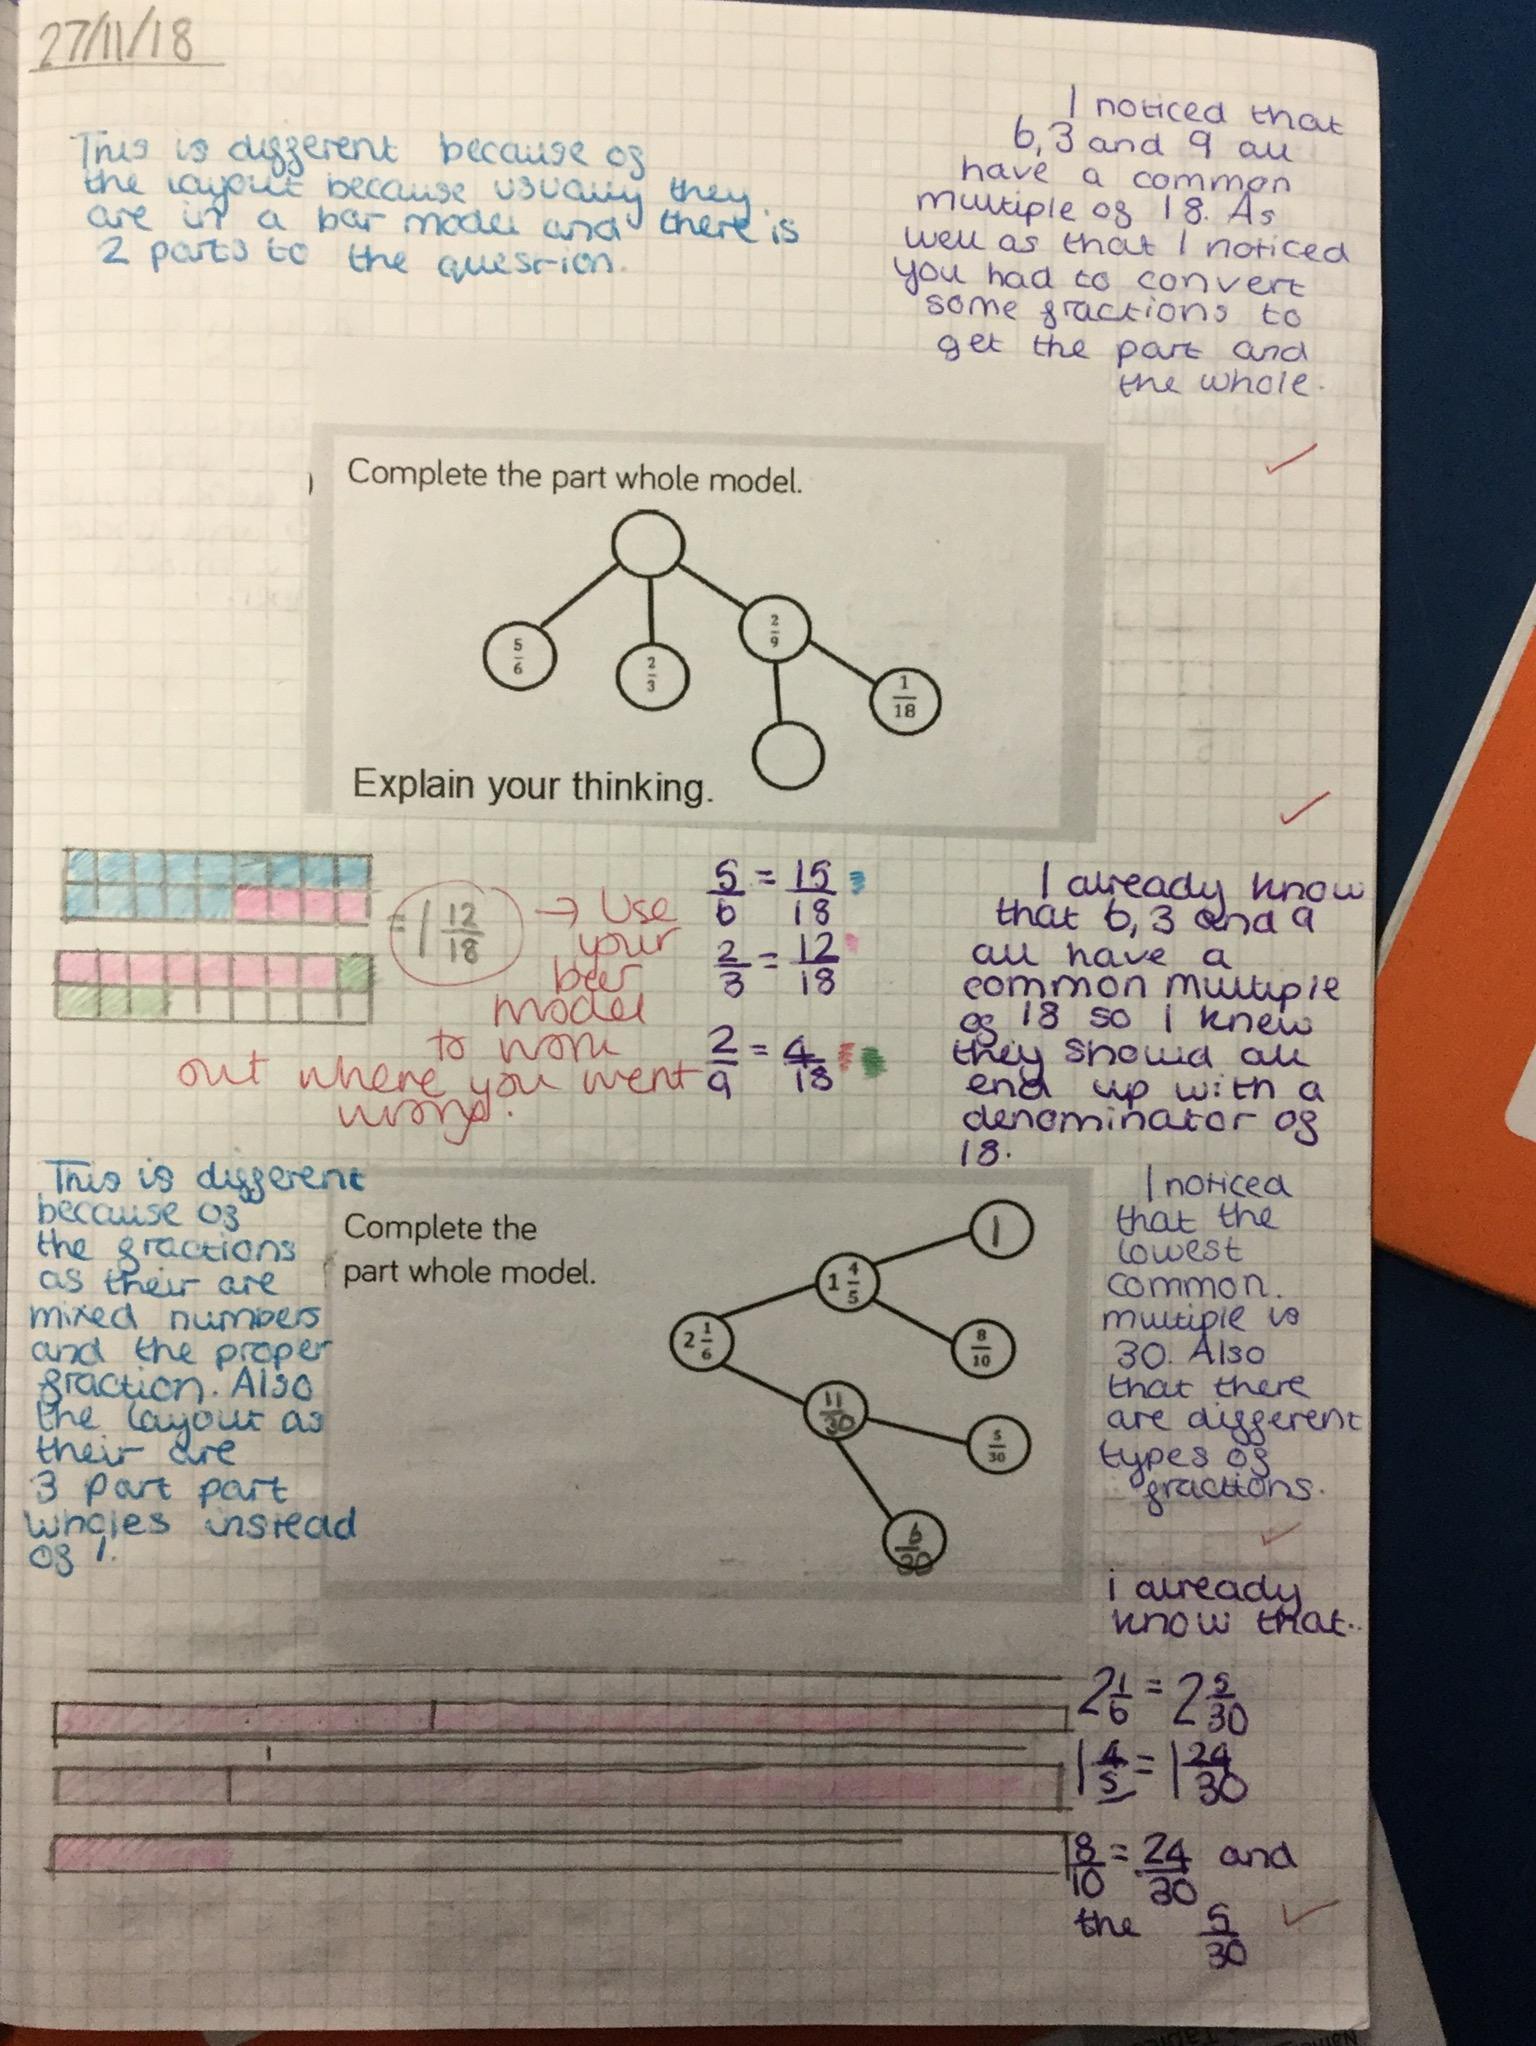 27/11/18
This is different because of
the layout because usually they
are in a bar model and there is
2 parts to the question.
I noticed that
6, 3 and 9 all
have a common
multiple of 18. As
well as that I noticed
you had to convert
some fractions to
get the part and
the whole.
Complete the part whole model.
5/6
2/3
2/9
1/18
Explain your thinking.
= 1 12/18
→ Use
your
bar
model
to work
out where you went
wrong.
5/6 = 15/18
2/3 = 12/18
2/9 = 4/18
I already know
that 6, 3 and 9
all have a
common multiple
of 18 so I knew
they should all
end up with a
denominator of
18.
This is different
because of
the fractions
as their are
mixed numbers
and the proper
fraction. Also
the layout as
their are
3 part part
wholes instead
of 1.
Complete the
part whole model.
1
1 4/5
2 1/6
8/10
11/30
5/30
6/30
I noticed
that the
lowest
common.
multiple is
30. Also
that there
are different
types of
fractions.
i already
know that..
2 1/6 = 2 5/30
1 4/5 = 1 24/30
8/10 = 24/30 and
the 5/30